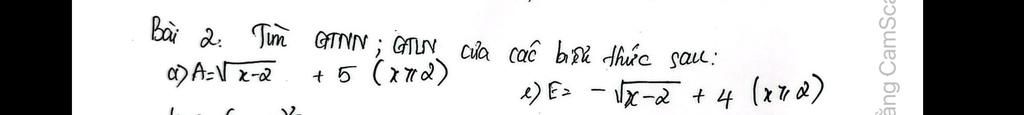 Bài 2: Tìm GTNN; GTLN của các biểu thức sau:
a) A = √x-2 + 5 (x ≥ 2)
e) E = - √x-2 + 4 (x ≥ 2)
ằng CamSca